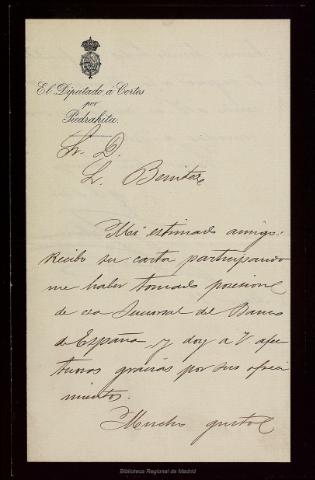 El Diputado á Cortes
por
Piedrahita.
Sr. D.
L. Benitez
Mi estimado amigo:
Recibo su carta participando
me haber tomado posesion
de esa Sucursal del Banco
de España, y doy a V afec
tuosas gracias por sus ofreci
mientos.
Mucho gusto
Biblioteca Regional de Madrid